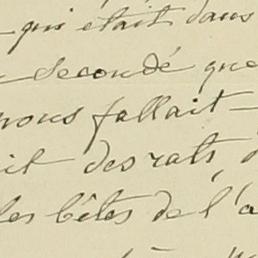 qui était dans
Secondé que
nous fallait
it des rats,
les bêtes de l'a